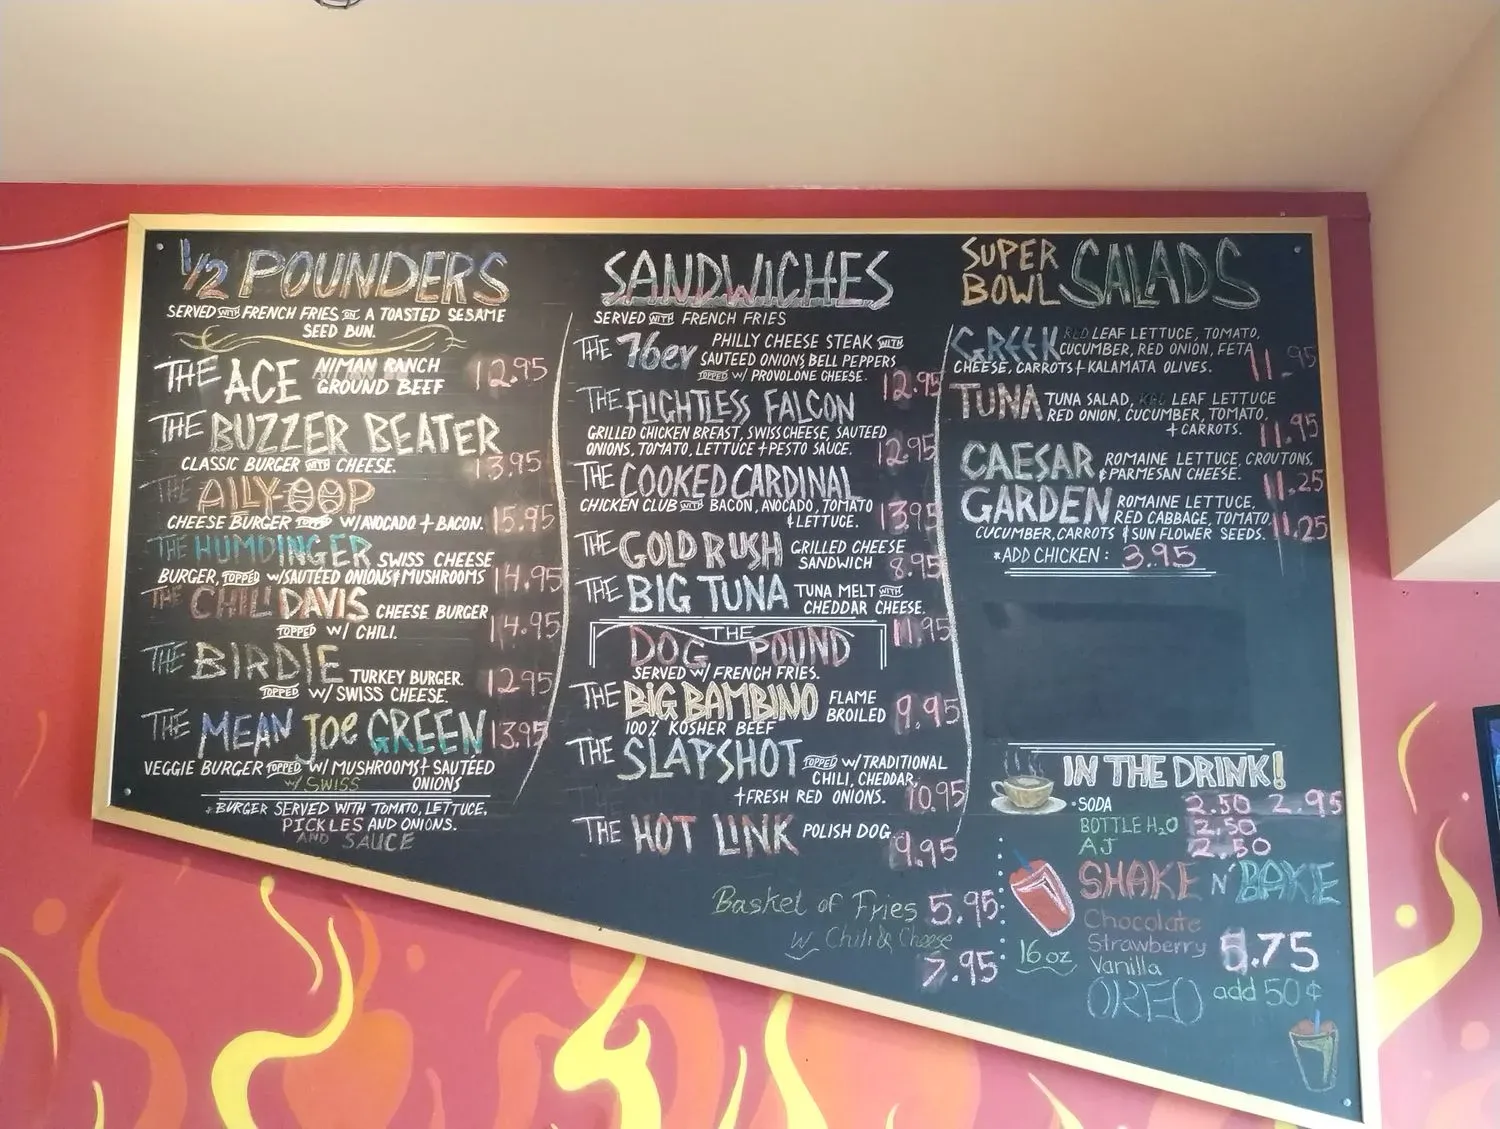 1/2 POUNDERS
SERVED WITH FRENCH FRIES ON A TOASTED SESAME
SEED BUN.
THE ACE NIMAN RANCH
GROUND BEEF 12.95
THE BUZZER BEATER
CLASSIC BURGER WITH CHEESE. 13.95
THE ALLY-OOP
CHEESE BURGER TOPPED W/AVOCADO + BACON. 15.95
THE HUMDINGER SWISS CHEESE
BURGER, TOPPED W/SAUTÉED ONIONS & MUSHROOMS 14.95
THE CHILI DAVIS CHEESE BURGER
TOPPED W/ CHILI. 14.95
THE BIRDIE TURKEY BURGER.
TOPPED W/ SWISS CHEESE. 12.95
THE MEAN JOE GREEN 13.95
VEGGIE BURGER TOPPED W/ MUSHROOMS + SAUTÉED
W/ SWISS ONIONS
* BURGER SERVED WITH TOMATO, LETTUCE,
PICKLES AND ONIONS.
AND SAUCE
SANDWICHES
SERVED WITH FRENCH FRIES
THE 76er PHILLY CHEESE STEAK WITH
SAUTEED ONIONS, BELL PEPPERS
TOPPED W/ PROVOLONE CHEESE. 12.95
THE FLIGHTLESS FALCON
GRILLED CHICKEN BREAST, SWISS CHEESE, SAUTEED
ONIONS, TOMATO, LETTUCE + PESTO SAUCE. 12.95
THE COOKED CARDINAL
CHICKEN CLUB WITH BACON, AVOCADO, TOMATO
& LETTUCE. 13.95
THE GOLD RUSH GRILLED CHEESE
SANDWICH 8.95
THE BIG TUNA TUNA MELT WITH
CHEDDAR CHEESE. 11.95
THE
DOG POUND
SERVED W/ FRENCH FRIES.
THE BIG BAMBINO FLAME
BROILED 9.95
100% KOSHER BEEF
THE SLAPSHOT TOPPED W/ TRADITIONAL
CHILI, CHEDDAR,
+ FRESH RED ONIONS. 10.95
THE HOT LINK POLISH DOG. 9.95
Basket of Fries 5.95
w/ Chili & Cheese
7.95
SUPER
BOWL SALADS
GREEK RED LEAF LETTUCE, TOMATO,
CUCUMBER, RED ONION, FETA
CHEESE, CARROTS + KALAMATA OLIVES. 11.95
TUNA TUNA SALAD, RED LEAF LETTUCE
RED ONION, CUCUMBER, TOMATO,
+ CARROTS. 11.95
CAESAR ROMAINE LETTUCE, CROUTONS,
& PARMESAN CHEESE. 11.25
GARDEN ROMAINE LETTUCE,
RED CABBAGE, TOMATO, 11.25
CUCUMBER, CARROTS & SUN FLOWER SEEDS.
*ADD CHICKEN: 3.95
IN THE DRINK!
• SODA 2.50 2.95
BOTTLE H2O 2.50
AJ 2.50
SHAKE N' BAKE
Chocolate
Strawberry 5.75
Vanilla
16 oz
OREO add 50¢